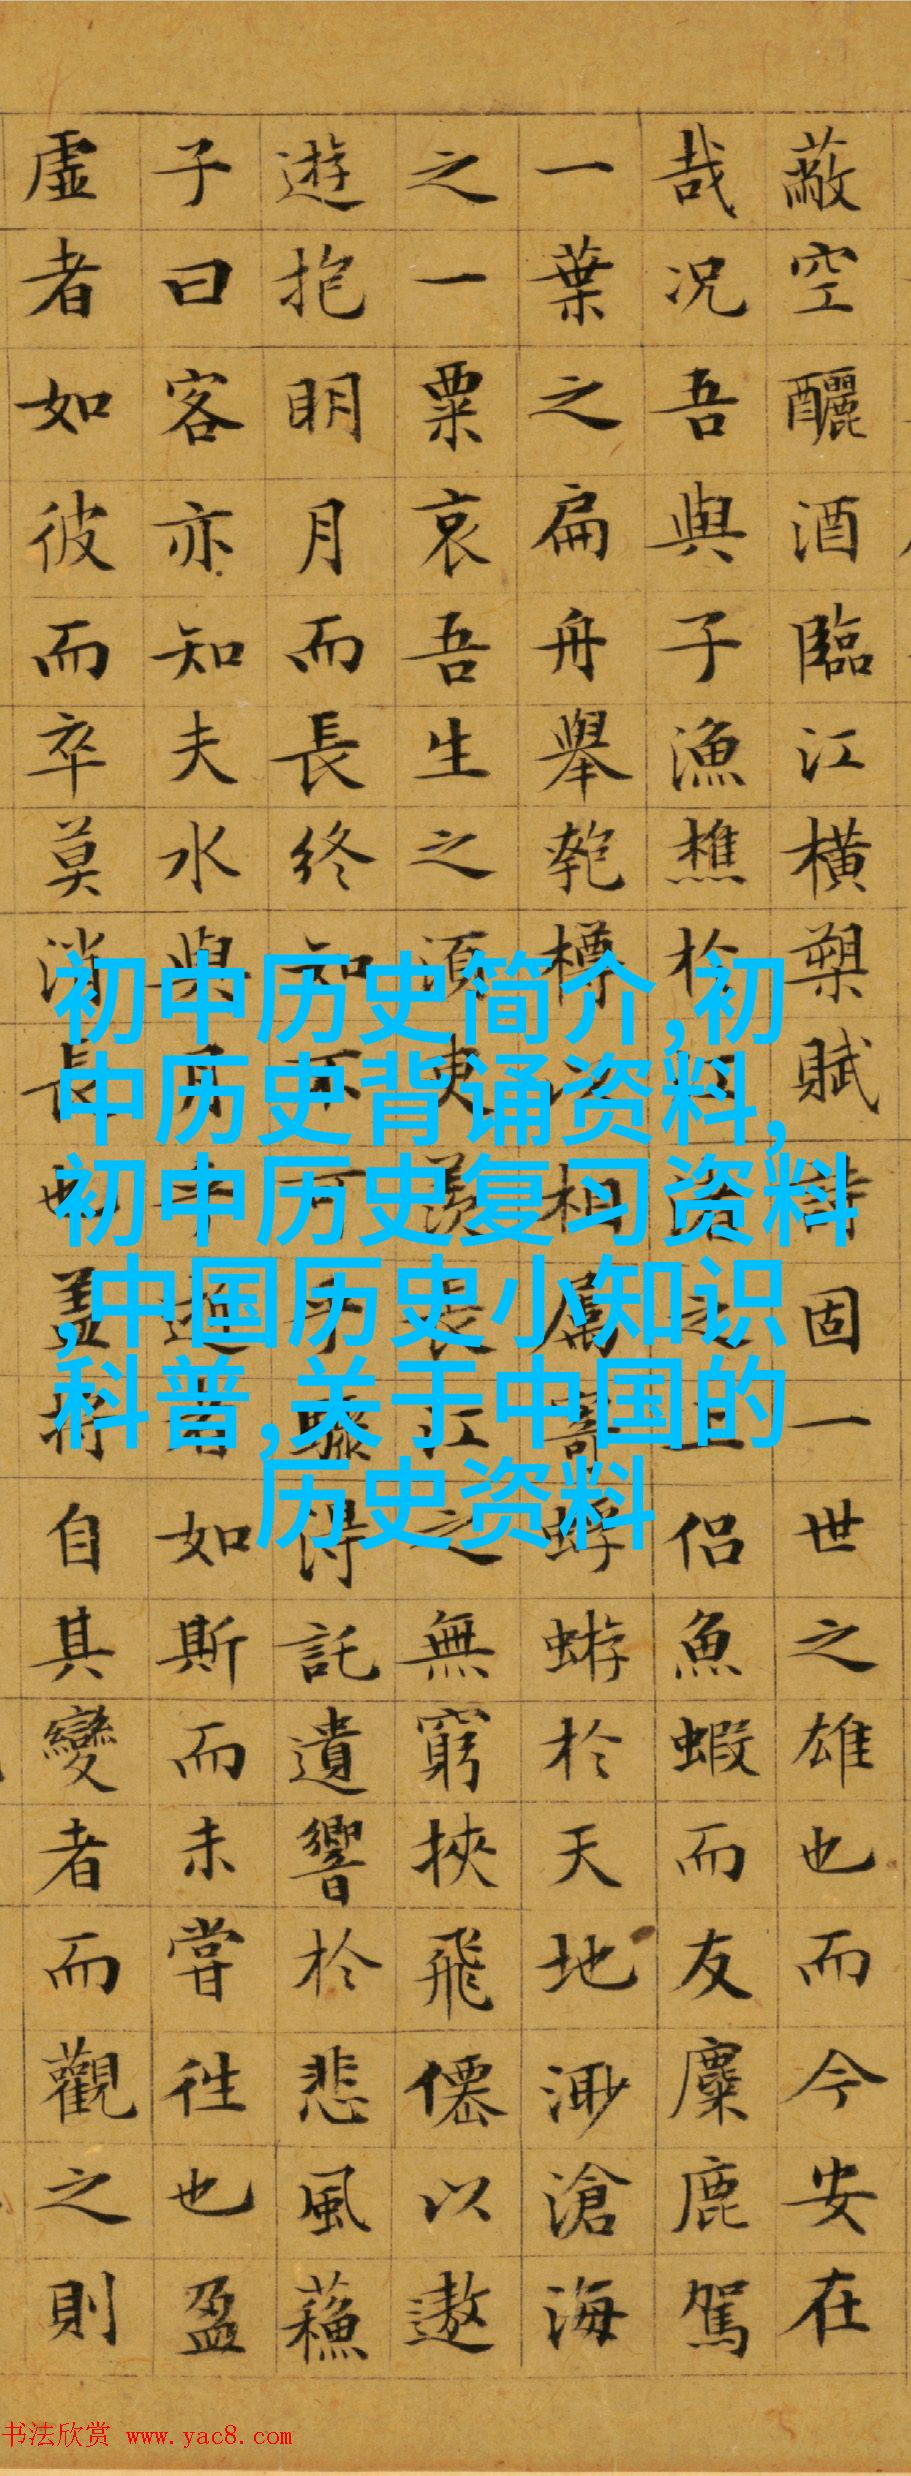 蔽空釃酒臨江橫槊賦詩固一世之雄也而今安在
哉况吾與子漁樵於江渚之上侶魚蝦而友麋鹿駕
一葉之扁舟舉匏樽以相屬寄蜉蝣於天地渺滄海
之一粟哀吾生之須臾羨長江之無窮挾飛僊以遨
遊抱明月而長終知不可乎驟得託遺響於悲風蘇
子曰客亦知夫水與月乎逝者如斯而未嘗往也盈
虛者如彼而卒莫消長也蓋將自其變者而觀之則
初中历史简介,初
中历史背诵资料,
初中历史复习资料
,中国历史小知识
科普,关于中国的
历史资料
书法欣赏 www.yac8.com